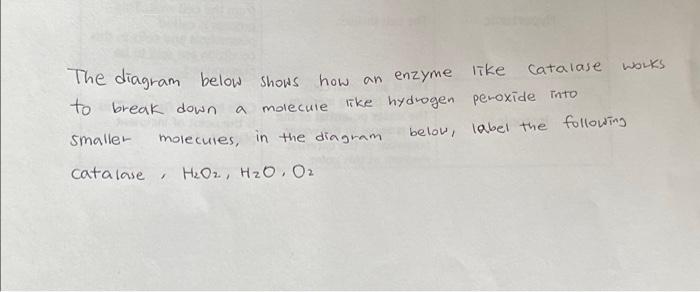 The diagram below shows how an enzyme like catalase works
to break down a molecule like hydrogen peroxide into
smaller molecules, in the diagram below, label the following
catalase, H₂O₂, H₂O, O₂